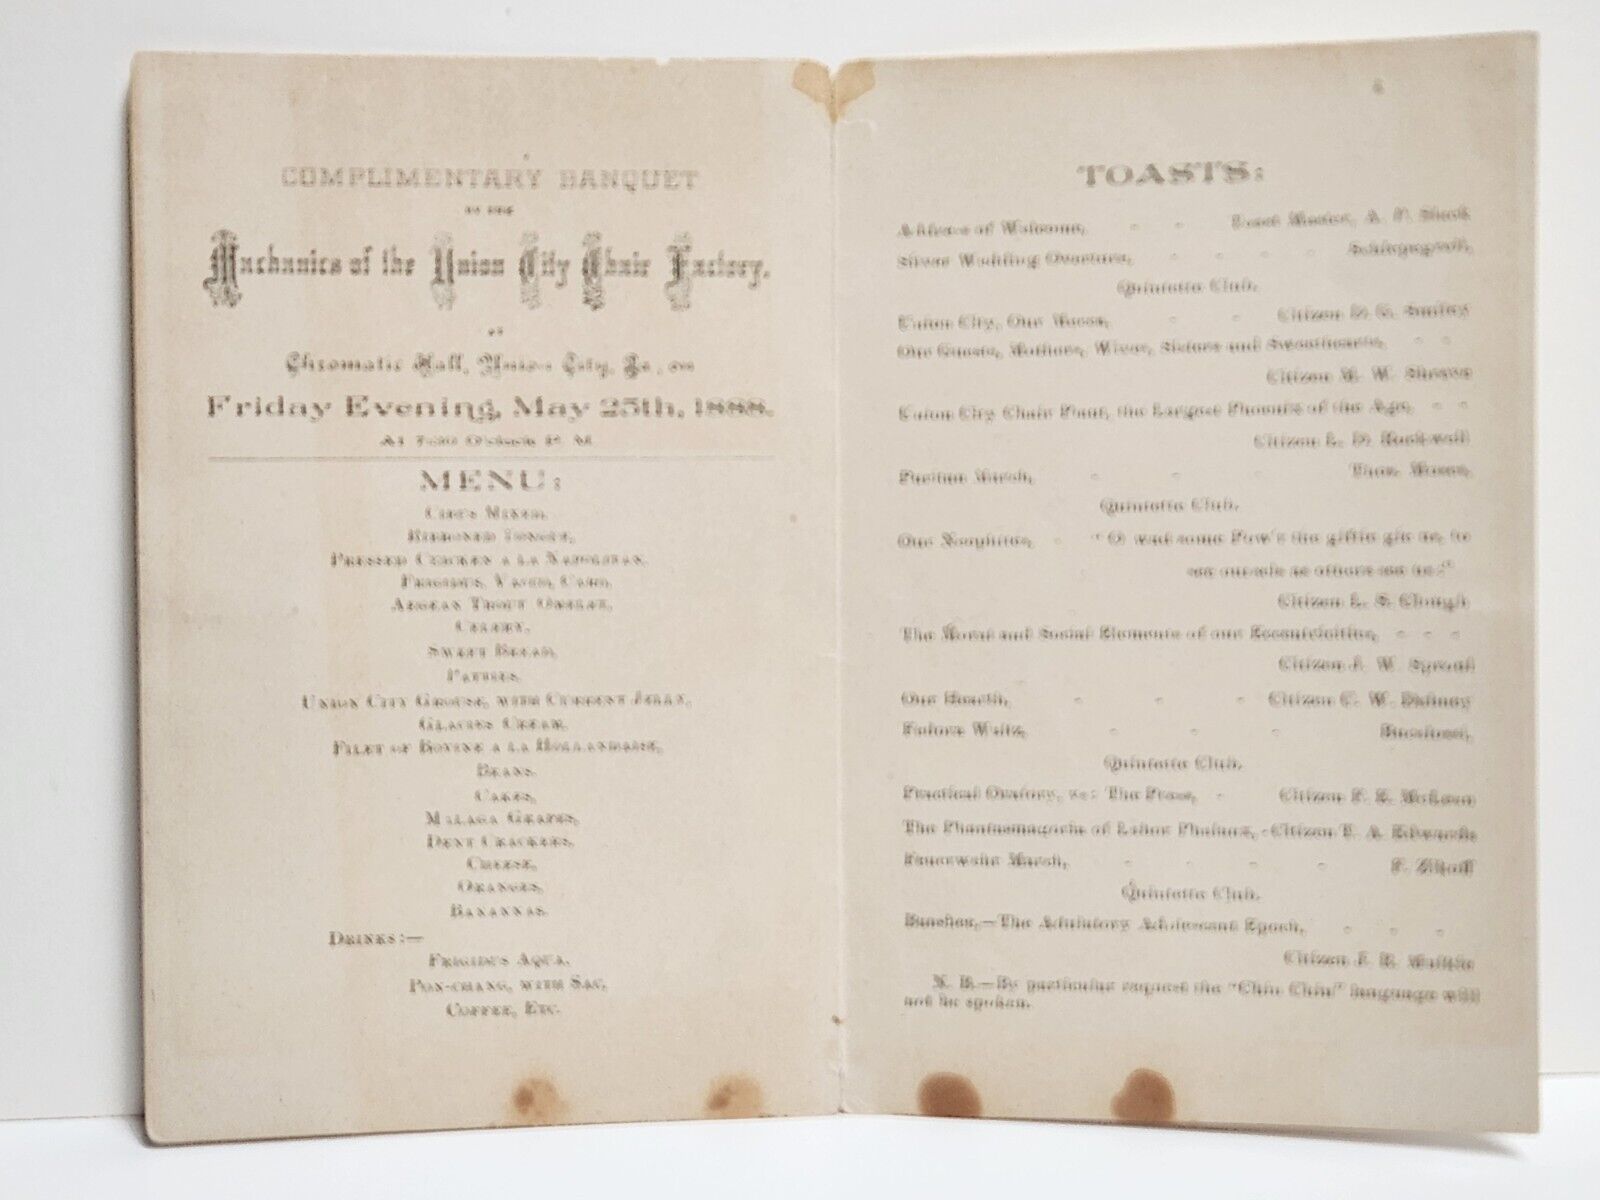 COMPLIMENTARY BANQUET
Mechanics of the Union City Chair Factory,
AT
Chromatic Hall, Union City, Pa., on
Friday Evening, May 25th, 1888.
At 7:30 O'clock P. M.
MENU:
MIXED,
TONGUE,
PRESSED CHICKEN A LA NAPOLITAN,
FRIGIDUS, CARO,
AEGEAN TROUT OMELET,
CELERY,
SWEET BREAD,
PATTIES,
UNION CITY GROUSE, WITH CURRENT JELLY,
GLACIES CREAM,
FILET OF BOVINE A LA HOLLANDAISE,
BEANS.
CAKES,
MALAGA GRAPES,
DENT CRACKERS,
CHEESE,
ORANGES,
BANANNAS.
DRINKS:—
FRIGIDUS AQUA,
PON-CHANG, WITH SAC,
COFFEE, ETC.
TOASTS:
Address of Welcome, - - Toast Master, A. P. Shack
Silver Wedding Overture, - - - - Schlepegrell,
Quintette Club.
Union City, Our - - Citizen D. G. Smiley
Our Guests, Mothers, Wives, Sisters and Sweethearts, - -
Citizen M. W. Shreve
Union City Chair Plant, the Largest Phoenix of the Age, - -
Citizen L. D. Rockwell
Puritan March, - - - Thos.
Quintette Club.
Our Neighbors, - "O wad some Pow'r the giftie gie us, to
see oursels as others see us;"
Citizen L. S. Clough
The Moral and Social Elements of our Eccentricities, - - -
Citizen J. W. Sproul
Our Hearth, - - - Citizen C. W.
Fedora Waltz, - - - Bucalossi,
Quintette Club.
Practical Oratory, vs: The Press, - Citizen F. E. McLean
The Phantasmagoria of Labor Phalanx, -Citizen T. A. Edwards
March, - - - - F. Zikoff
Quintette Club.
Baches,—The Adulatory Adolescent Epoch, - - -
Citizen J. R.
N. B.—By particular request the "Chin Chin" language will
not be spoken.